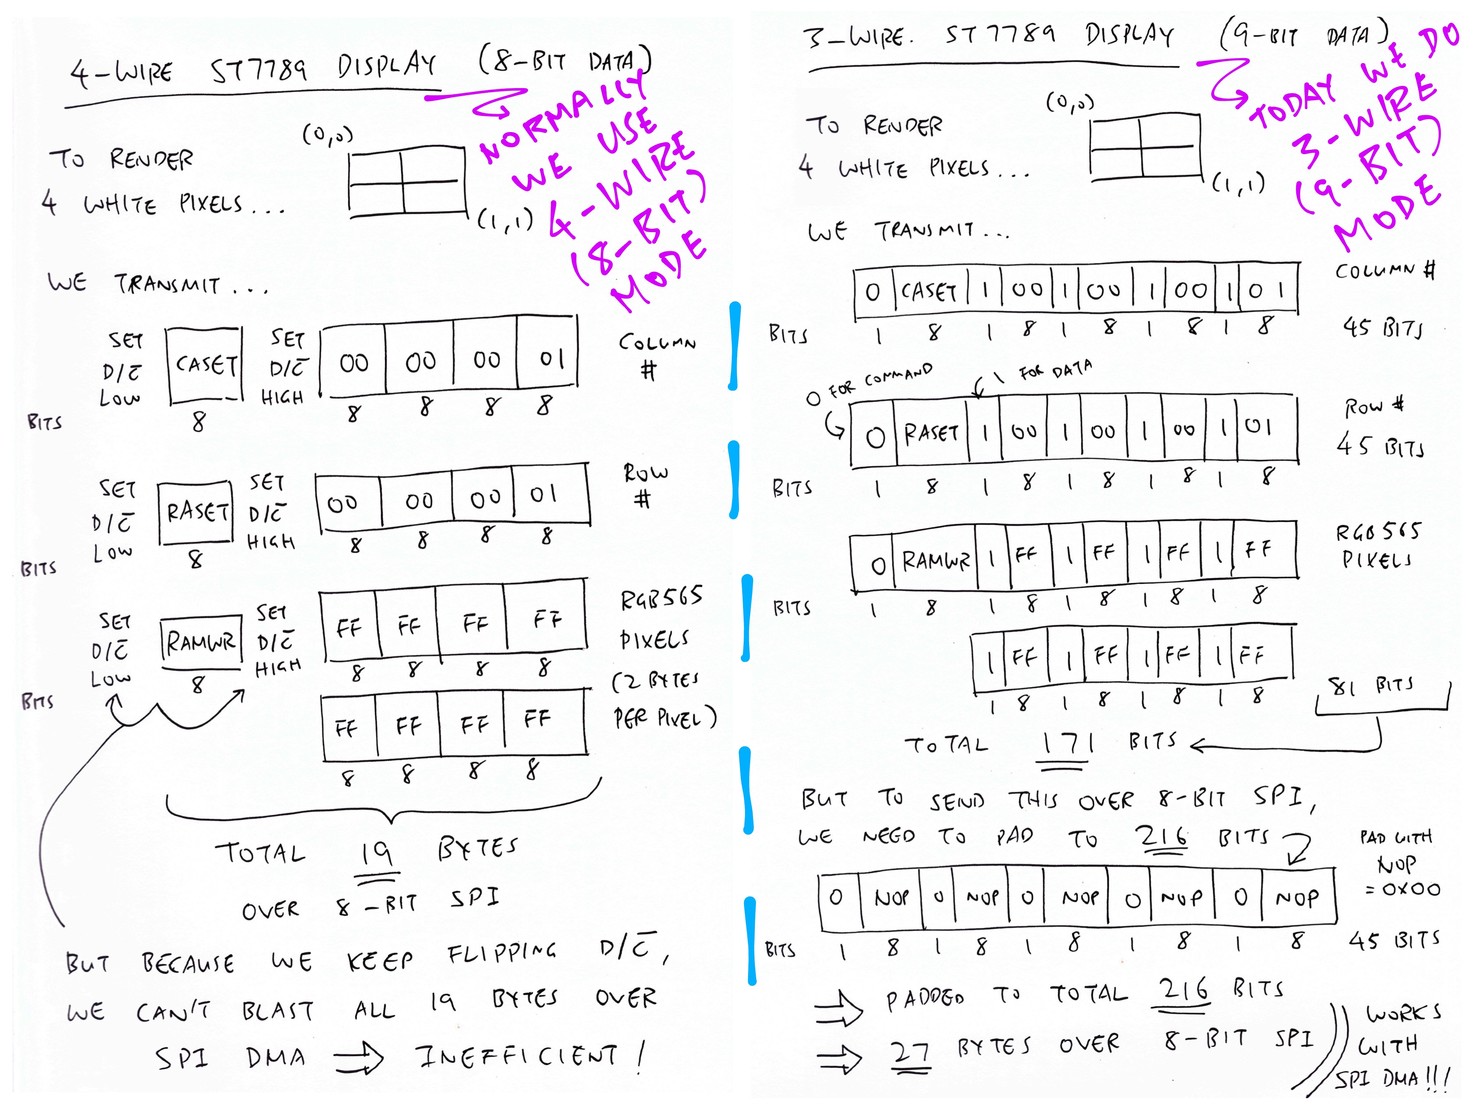 4-WIRE ST7789 DISPLAY (8-BIT DATA)
NORMALLY
WE USE
4-WIRE
(8-BIT)
MODE
TO RENDER
4 WHITE PIXELS...
(0,0)
(1,1)
WE TRANSMIT...
SET D/C̅ LOW
CASET
SET D/C̅ HIGH
00 00 00 01
COLUMN #
BITS
8 8 8 8 8
SET D/C̅ LOW
RASET
SET D/C̅ HIGH
00 00 00 01
ROW #
BITS
8 8 8 8 8
SET D/C̅ LOW
RAMWR
SET D/C̅ HIGH
FF FF FF FF
RGB565
PIXELS
(2 BYTES
PER PIXEL)
BITS
8 8 8 8 8
FF FF FF FF
8 8 8 8
TOTAL 19 BYTES
OVER 8-BIT SPI
BUT BECAUSE WE KEEP FLIPPING D/C̅,
WE CAN'T BLAST ALL 19 BYTES OVER
SPI DMA ⇒ INEFFICIENT!
3-WIRE. ST7789 DISPLAY (9-BIT DATA)
TODAY WE DO
3-WIRE
(9-BIT)
MODE
TO RENDER
4 WHITE PIXELS...
(0,0)
(1,1)
WE TRANSMIT...
0 CASET 1 00 1 00 1 00 1 01
COLUMN #
BITS 1 8 1 8 1 8 1 8 1 8
45 BITS
0 FOR COMMAND
1 FOR DATA
0 RASET 1 00 1 00 1 00 1 01
ROW #
45 BITS
BITS 1 8 1 8 1 8 1 8 1 8
0 RAMWR 1 FF 1 FF 1 FF 1 FF
RGB565
PIXELS
BITS 1 8 1 8 1 8 1 8 1 8
1 FF 1 FF 1 FF 1 FF
1 8 1 8 1 8 1 8
81 BITS
TOTAL 171 BITS
BUT TO SEND THIS OVER 8-BIT SPI,
WE NEED TO PAD TO 216 BITS
PAD WITH
NOP
= 0X00
0 NOP 0 NOP 0 NOP 0 NOP 0 NOP
BITS 1 8 1 8 1 8 1 8 1 8
45 BITS
⇒ PADDED TO TOTAL 216 BITS
⇒ 27 BYTES OVER 8-BIT SPI
WORKS
WITH
SPI DMA!!!